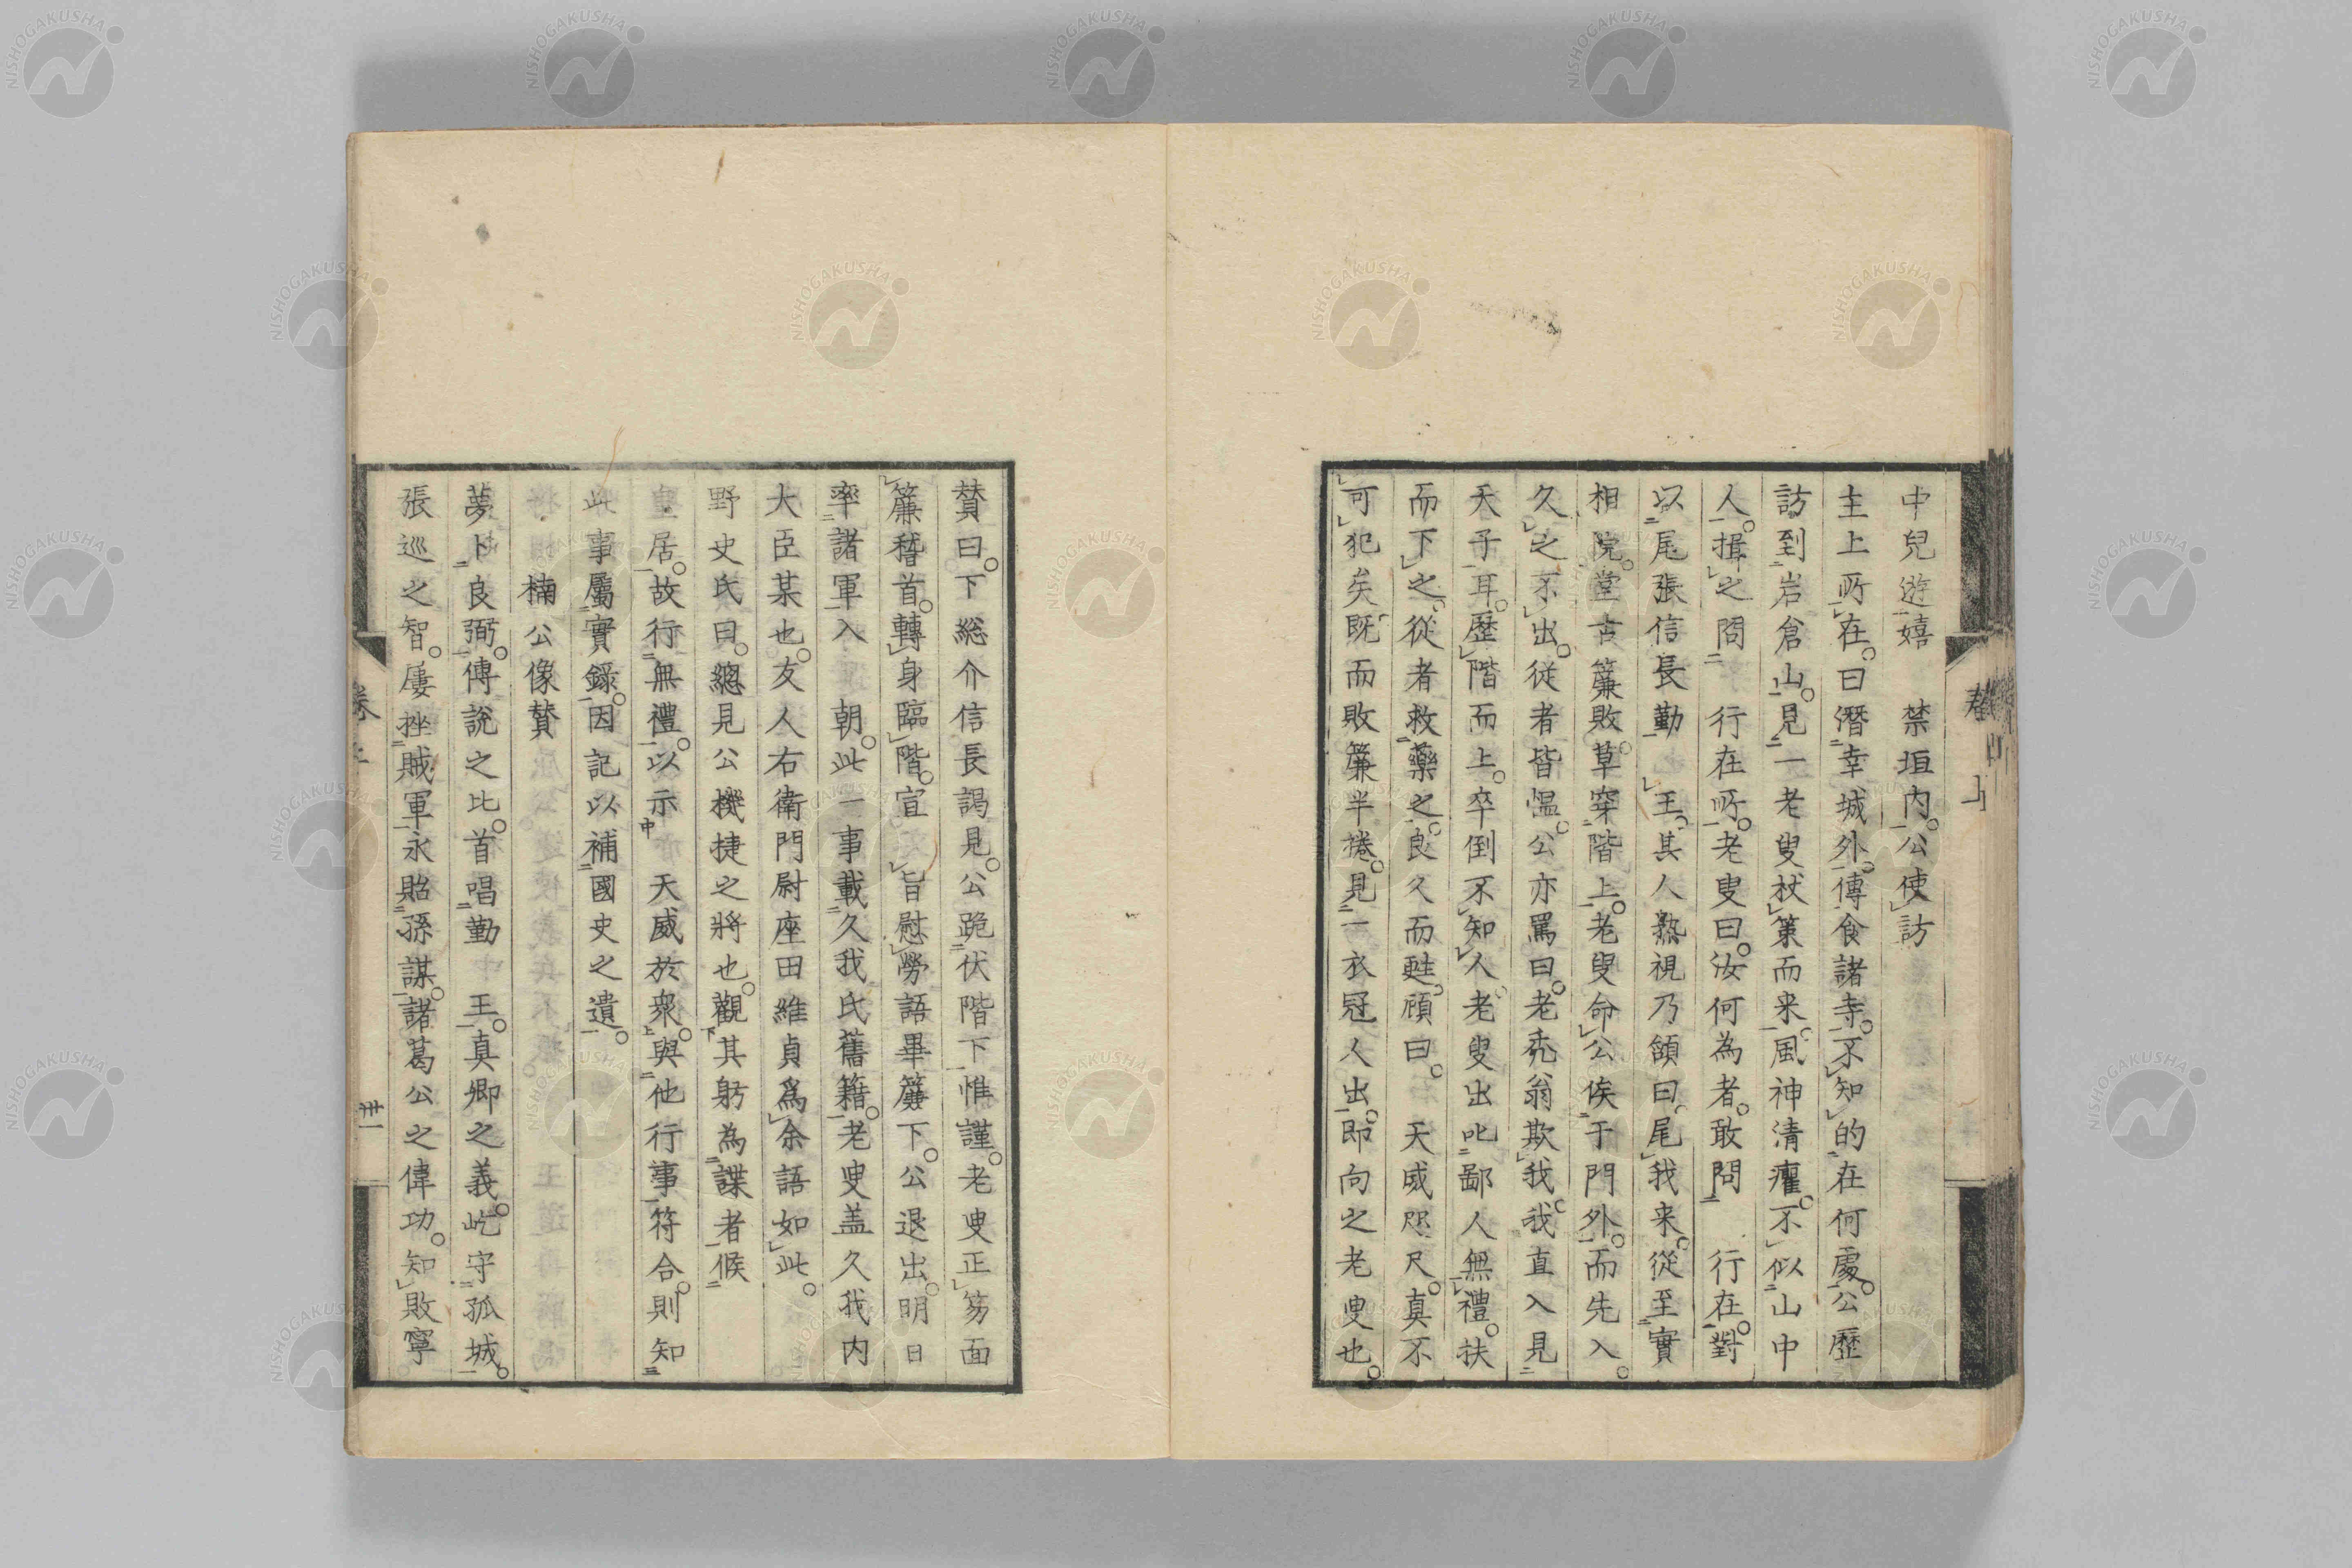 中兒遊嬉　禁垣内。公使訪
主上所在。曰潛幸城外。傳食諸寺。不知的在何處。公歷
訪到岩倉山。見一老叟杖策而来。風神清癯。不似山中
人。揖之問　行在所。老叟曰。汝何為者。敢問　行在。對
以尾張信長勤　王。其人熟視乃頷曰。尾我来。從至實
相院。堂古簾敗。草穿階上。老叟命公俟于門外。而先入。
久之不出。従者皆慍。公亦罵曰。老禿翁欺我。我直入見
天子耳。歷階而上。卒倒不知人。老叟出叱鄙人無禮。扶
而下之。從者救藥之。良久而甦。頋曰。　天威咫尺。真不
可犯矣。既而敗簾半捲。見一衣冠人出。即向之老叟也。
賛曰。下総介信長謁見。公跪伏階下惟謹。老叟正笏面
簾稽首。轉身臨階。宣　旨慰勞語畢簾下。公退出。明日
率諸軍入　朝。此一事載久我氏舊籍。老叟盖久我内
大臣某也。友人右衛門尉座田維貞爲余語如此。
野史氏曰。總見公機捷之將也。觀其躬為諜者。候
皇居。故行無禮。以示　天威於衆。與他行事符合。則知
此事屬實錄。因記以補國史之遺。
楠公像賛
夢卜良弼。傳說之比。首唱勤　王。真卿之義。屹守孤城。
張巡之智。屢挫賊軍。永貽孫謀。諸葛公之偉功。知敗寧
卷上
卅一
NISHOGAKUSHA